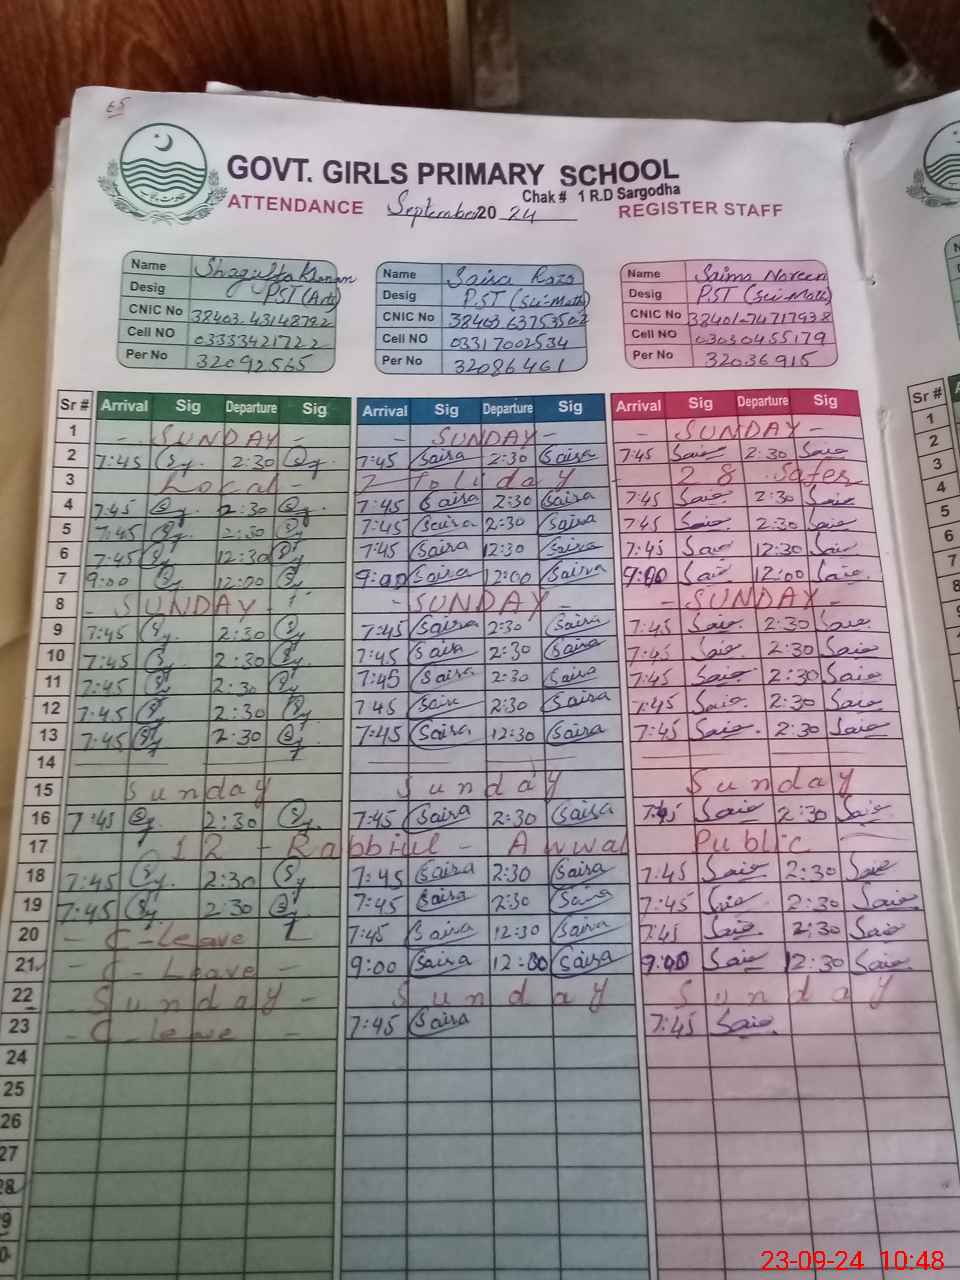 65
GOVT. GIRLS PRIMARY SCHOOL
Chak # 1 R.D Sargodha
ATTENDANCE September 20 24 REGISTER STAFF
Name Shagufta Khanam Name Saira Name Saima Noreen
Desig PST (Arts) Desig P.ST (Sci-Math) Desig P.ST (Sci-Math)
CNIC No CNIC No CNIC No
Cell NO 03333421722 Cell NO 03317002534 Cell NO 03030455179
Per No 32092565 Per No 32086461 Per No 32036915
Sr # Arrival Sig Departure Sig Arrival Sig Departure Sig Arrival Sig Departure Sig Sr #
1 - SUNDAY - - SUNDAY - - SUNDAY - 1
2 7:45 2:30 7:45 Saira 2:30 Saira 7:45 2:30 2
3 Local - Holiday - 28 Safer 3
4 7:45 2:30 7:45 Saira 2:30 Saira 7:45 2:30 4
5 7:45 2:30 7:45 Saira 2:30 Saira 7:45 2:30 5
6 7:45 12:30 7:45 Saira 12:30 Saira 7:45 12:30 6
7 9:00 12:00 9:00 Saira 12:00 Saira 9:00 12:00 7
8 - SUNDAY - - SUNDAY - - SUNDAY - 8
9 7:45 2:30 7:45 Saira 2:30 Saira 7:45 2:30
10 7:45 2:30 7:45 Saira 2:30 Saira 7:45 2:30
11 7:45 2:30 7:45 Saira 2:30 Saira 7:45 2:30
12 7:45 2:30 7:45 Saira 2:30 Saira 7:45 2:30
13 7:45 2:30 7:45 Saira 12:30 Saira 7:45 2:30
14
15 Sunday Sunday Sunday
16 7:45 2:30 7:45 Saira 2:30 Saira 7:45 2:30
17 12 - Rabbiul - Awwal Public
18 7:45 2:30 7:45 Saira 2:30 Saira 7:45 2:30
19 7:45 2:30 7:45 Saira 2:30 Saira 7:45 2:30
20 - C-leave 7:45 Saira 12:30 Saira 7:45 2:30
21 - C - Leave - 9:00 Saira 12:00 Saira 9:00 12:30
22 - Sunday - Sunday Sunday
23 - C - leave - 7:45 Saira 7:45
24
25
26
27
28
9
0
23-09-24 10:48